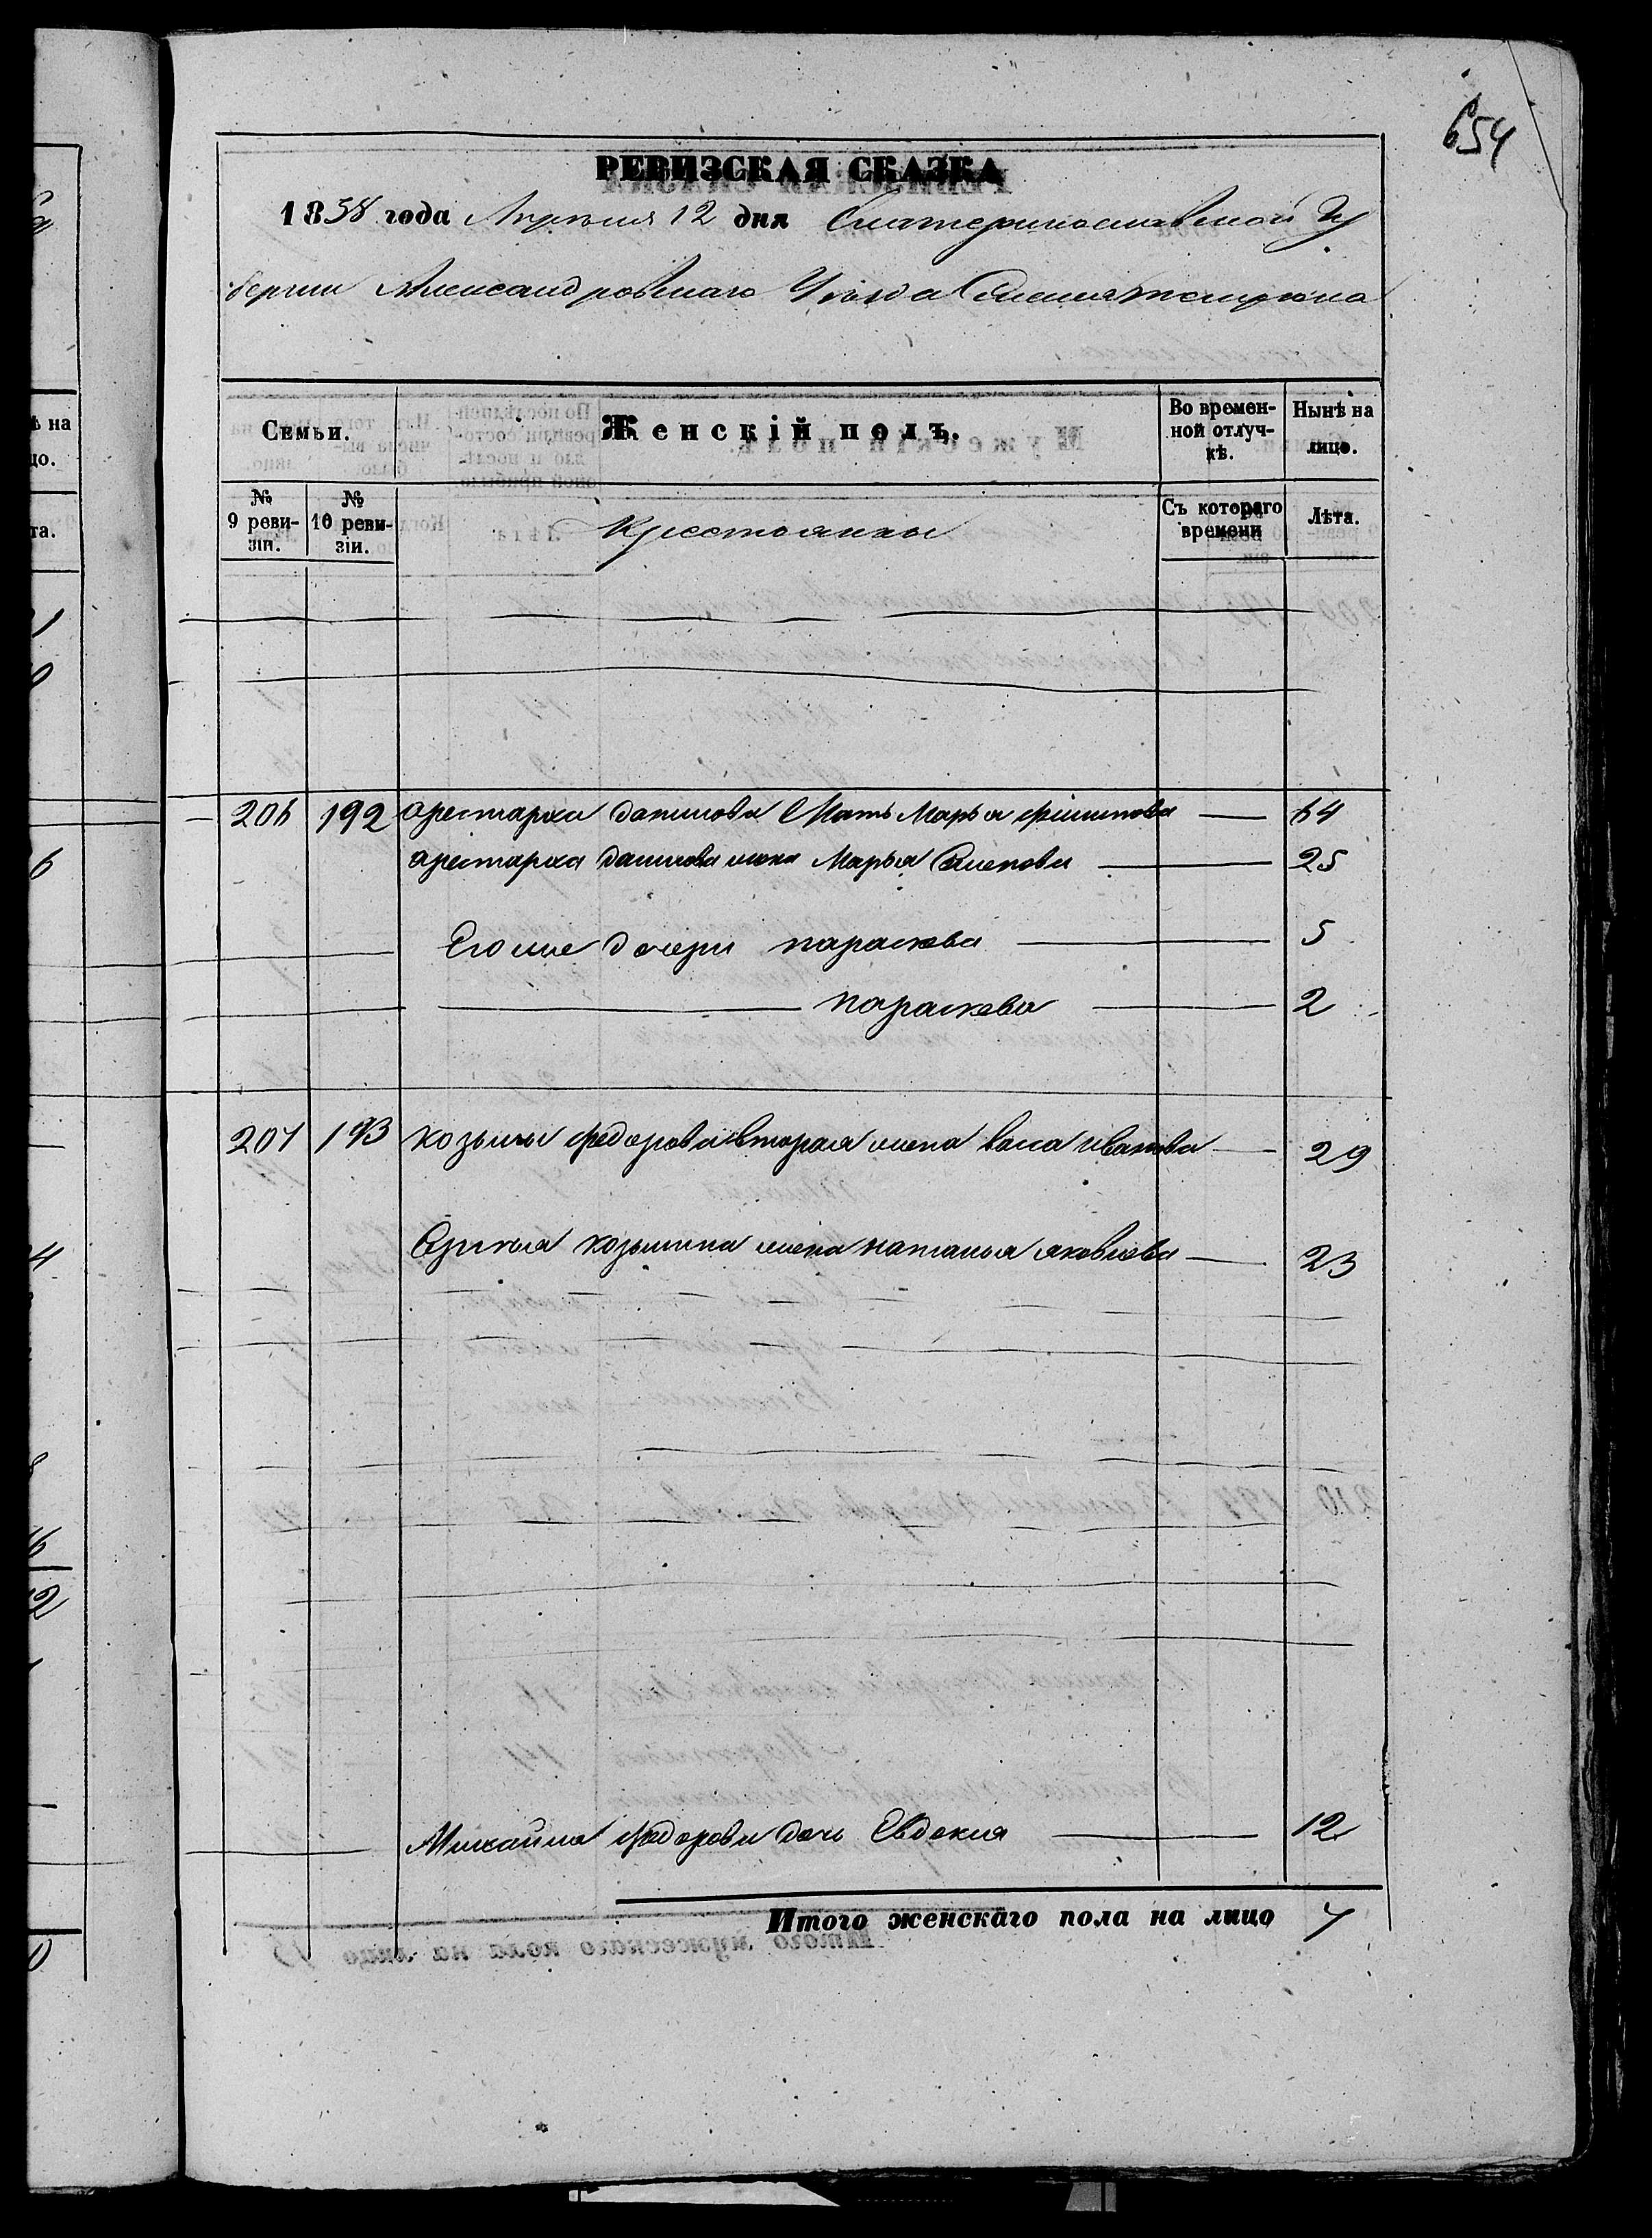 654
РЕВИЗСКАЯ СКАЗКА
1858 года Апреля 12 дня Екатеринославской Гу
берніи Александровскаго Уѣзда Села
Семьи.
Женскій полъ.
Во времен-
ной отлуч-
кѣ.
Нынѣ на
лицо.
№
9 реви-
зіи.
№
10 реви-
зіи.
Крестьянки
Съ котораго
времени
Лѣта.
206 192 арестарха данилова Мать Марья филипова 64
арестарха данилова жена Марья Семенова 25
Его же дочери параскева 5
параскева 2
207 193 козьмы федорова вторая жена васа иванова 29
козьмина жена наталья яковлева 23
Михайла федорова дочь Евдокия 12
Итого женскаго пола на лицо 7